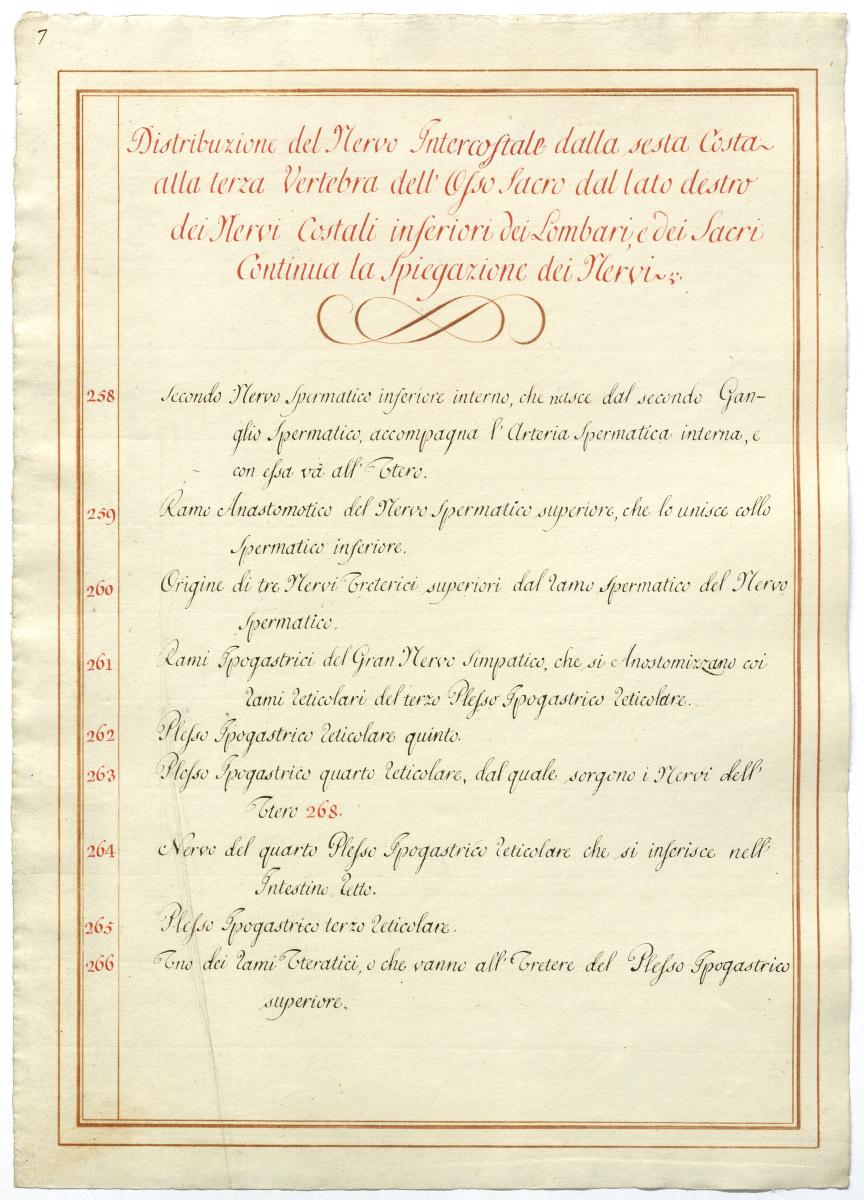 7
Distribuzione del Nervo Intercostale dalla sesta Costa
alla terza Vertebra dell' Osso Sacro dal lato destro
dei Nervi Costali inferiori dei Lombari, e dei Sacri
Continua la Spiegazione dei Nervi
258 Secondo Nervo Spermatico inferiore interno, che nasce dal secondo Gan-
glio Spermatico, accompagna l' Arteria Spermatica interna, e
con essa và all' Utero.
259 Ramo Anastomotico del Nervo Spermatico superiore, che lo unisce collo
Spermatico inferiore.
260 Origine di tre Nervi Ureterici superiori dal ramo Spermatico del Nervo
Spermatico.
261 Rami Ipogastrici del Gran Nervo Simpatico, che si Anostomizzano coi
rami reticolari del terzo Plesso Ipogastrico reticolare.
262 Plesso Ipogastrico reticolare quinto.
263 Plesso Ipogastrico quarto reticolare, dal quale sorgono i Nervi dell'
Utero 268.
264 Nervo del quarto Plesso Ipogastrico reticolare che si inferisce nell'
Intestino retto.
265 Plesso Ipogastrico terzo reticolare.
266 Uno dei rami Uteratici, o che vanno all' Uretere del Plesso Ipogastrico
superiore.